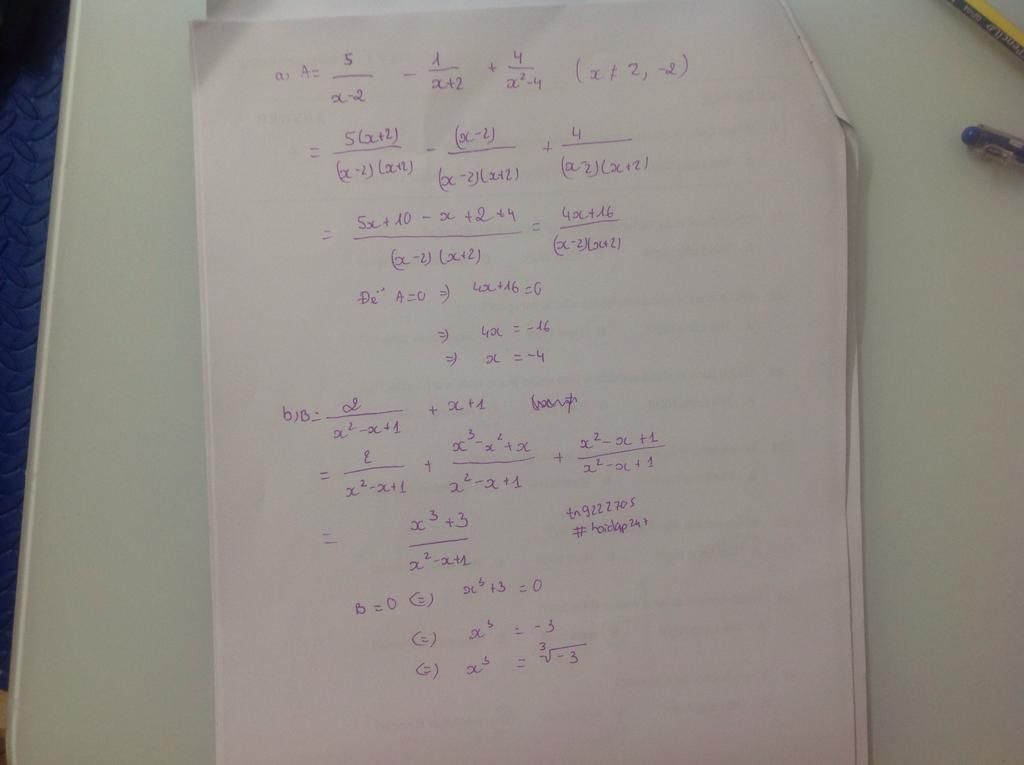 a, A = 5/(x-2) - 1/(x+2) + 4/(x²-4) (x ≠ 2, -2)
= 5(x+2)/((x-2)(x+2)) - (x-2)/((x-2)(x+2)) + 4/((x-2)(x+2))
= (5x+10-x+2+4)/((x-2)(x+2)) = (4x+16)/((x-2)(x+2))
Để A=0 => 4x+16=0
=> 4x = -16
=> x = -4
b, B = 2/(x²-x+1) + x+1
= 2/(x²-x+1) + (x³-x²+x)/(x²-x+1) + (x²-x+1)/(x²-x+1)
= (x³+3)/(x²-x+1)
tn9222705
#hoidap247
B = 0 (=) x³+3 = 0
(=) x³ = -3
(=) x³ = ∛-3